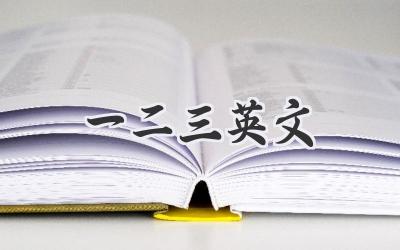 一二三英文